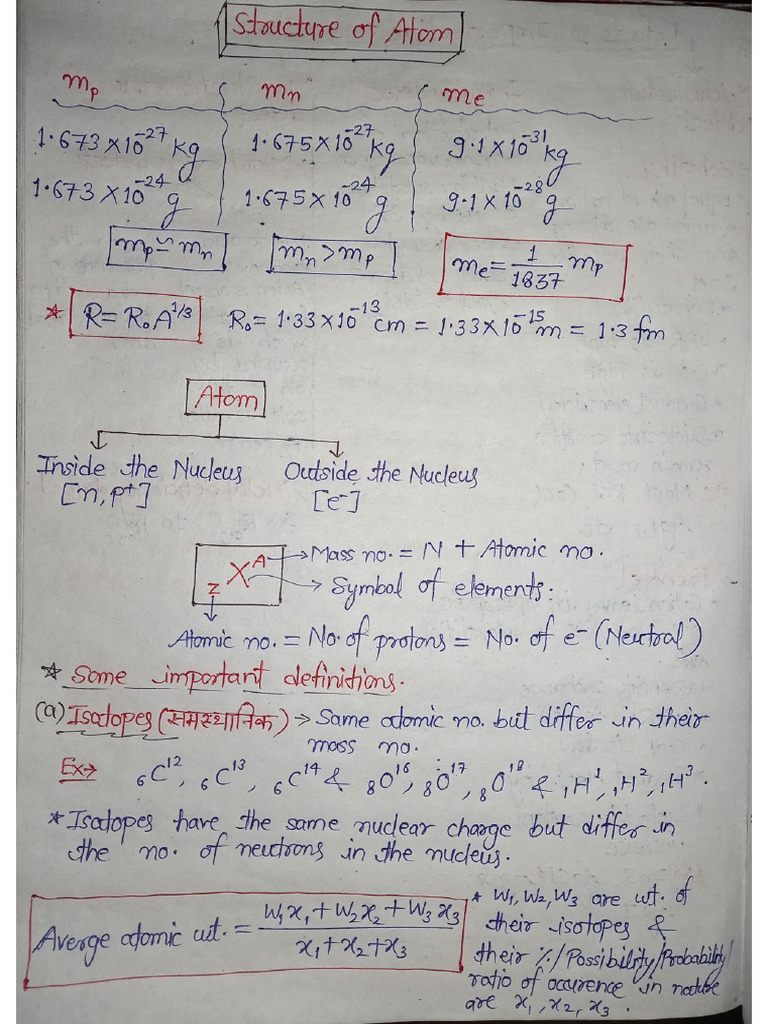 Structure of Atom
mp mn me
1.673×10⁻²⁷ kg 1.675×10⁻²⁷ kg 9.1×10⁻³¹ kg
1.673×10⁻²⁴ g 1.675×10⁻²⁴ g 9.1×10⁻²⁸ g
mp ≃ mn mn > mp me = 1/1837 mp
* R = R₀A^1/3 R₀ = 1.33×10⁻¹³ cm = 1.33×10⁻¹⁵ m = 1.3 fm
Atom
Inside the Nucleus Outside the Nucleus
[n, p⁺] [e⁻]
zX^A → Mass no. = N + Atomic no.
→ Symbol of elements.
Atomic no. = No. of protons = No. of e⁻ (Neutral)
* Some important definitions.
(a) Isotopes (समस्थानिक) → Same atomic no. but differ in their
mass no.
Ex→ ₆C¹², ₆C¹³, ₆C¹⁴ & ₈O¹⁶, ₈O¹⁷, ₈O¹⁸ & ₁H¹, ₁H², ₁H³.
* Isotopes have the same nuclear charge but differ in
the no. of neutrons in the nucleus.
Averge atomic wt. = W₁x₁+W₂x₂+W₃x₃ / x₁+x₂+x₃
* W₁, W₂, W₃ are wt. of
their isotopes &
their %/Possibility/Probability/
ratio of occurence in nature
are x₁, x₂, x₃.